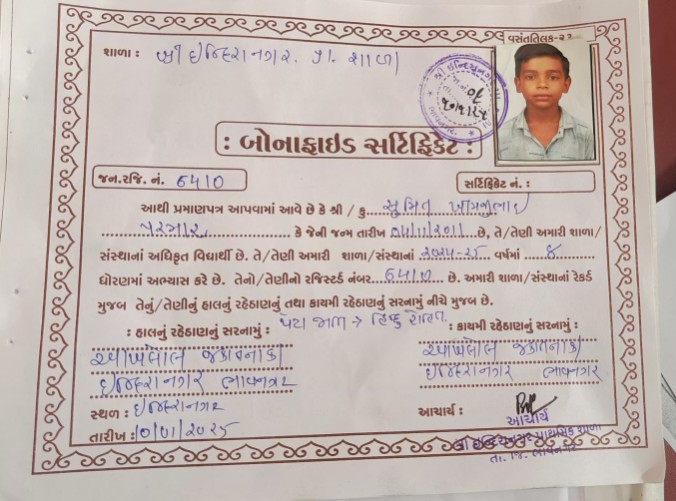 વસંતતિલક-૨૩
શાળા : શ્રી ઇન્દિરાનગર. પ્રા. શાળા
: બોનાફાઇડ સર્ટિફિકેટ :
જન.રજિ. નં. 6410
સર્ટિફિકેટ નં. :
આથી પ્રમાણપત્ર આપવામાં આવે છે કે શ્રી / કુ. સુમિત
પરમાર કે જેની જન્મ તારીખ છે, તે/તેણી અમારી શાળા/
સંસ્થાનાં અધિકૃત વિદ્યાર્થી છે. તે/તેણી અમારી શાળા/સંસ્થાનાં ૨૦૨૫-૨૬ વર્ષમાં
ધોરણમાં અભ્યાસ કરે છે. તેનો/તેણીનો રજિસ્ટર્ડ નંબર 6410 છે. અમારી શાળા/સંસ્થાનાં રેકર્ડ
મુજબ તેનું/તેણીનું હાલનું રહેઠાણનું તથા કાયમી રહેઠાણનું સરનામું નીચે મુજબ છે.
પેટા જાતિ → હિન્દુ
: હાલનું રહેઠાણનું સરનામું :
: કાયમી રહેઠાણનું સરનામું :
આખલોલ જકાતનાકા
આખલોલ જકાતનાકા
ઇન્દિરાનગર ભાવનગર
ઇન્દિરાનગર ભાવનગર
સ્થળ : ઇન્દિરાનગર
આચાર્ય :
આચાર્ય
તારીખ :
શ્રી ઇન્દિરાનગર પ્રાથમિક શાળા
તા. જિ. ભાવનગર